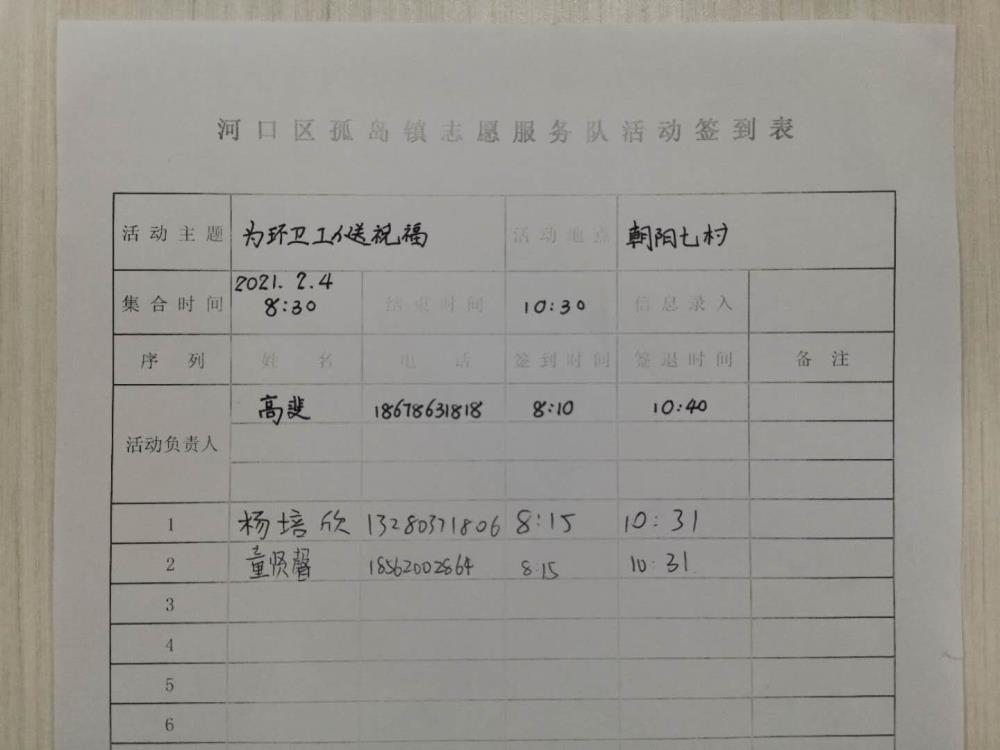 河口区孤岛镇志愿服务队活动签到表
活动主题 为环卫工人送祝福 活动地点 朝阳七村
集合时间 2021.2.4 8:30 结束时间 10:30 信息录入
序列 姓名 电话 签到时间 签退时间 备注
活动负责人 高斐 18678631818 8:10 10:40
1 杨培欣 13280371806 8:15 10:31
2 童贤馨 18562002864 8:15 10:31
3
4
5
6